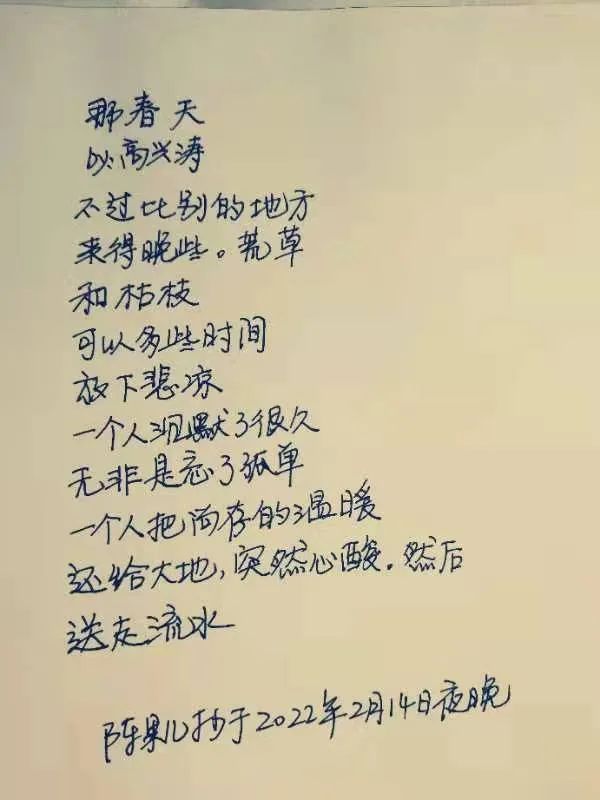 那春天
高兴涛
不过比别的地方
来得晚些。荒草
和枯枝
可以多些时间
放下悲凉
一个人沉默了很久
无非是忘了孤单
一个人把内存的温暖
还给大地,突然心酸。然后
送走流水
陈果儿抄于2022年2月14日夜晚